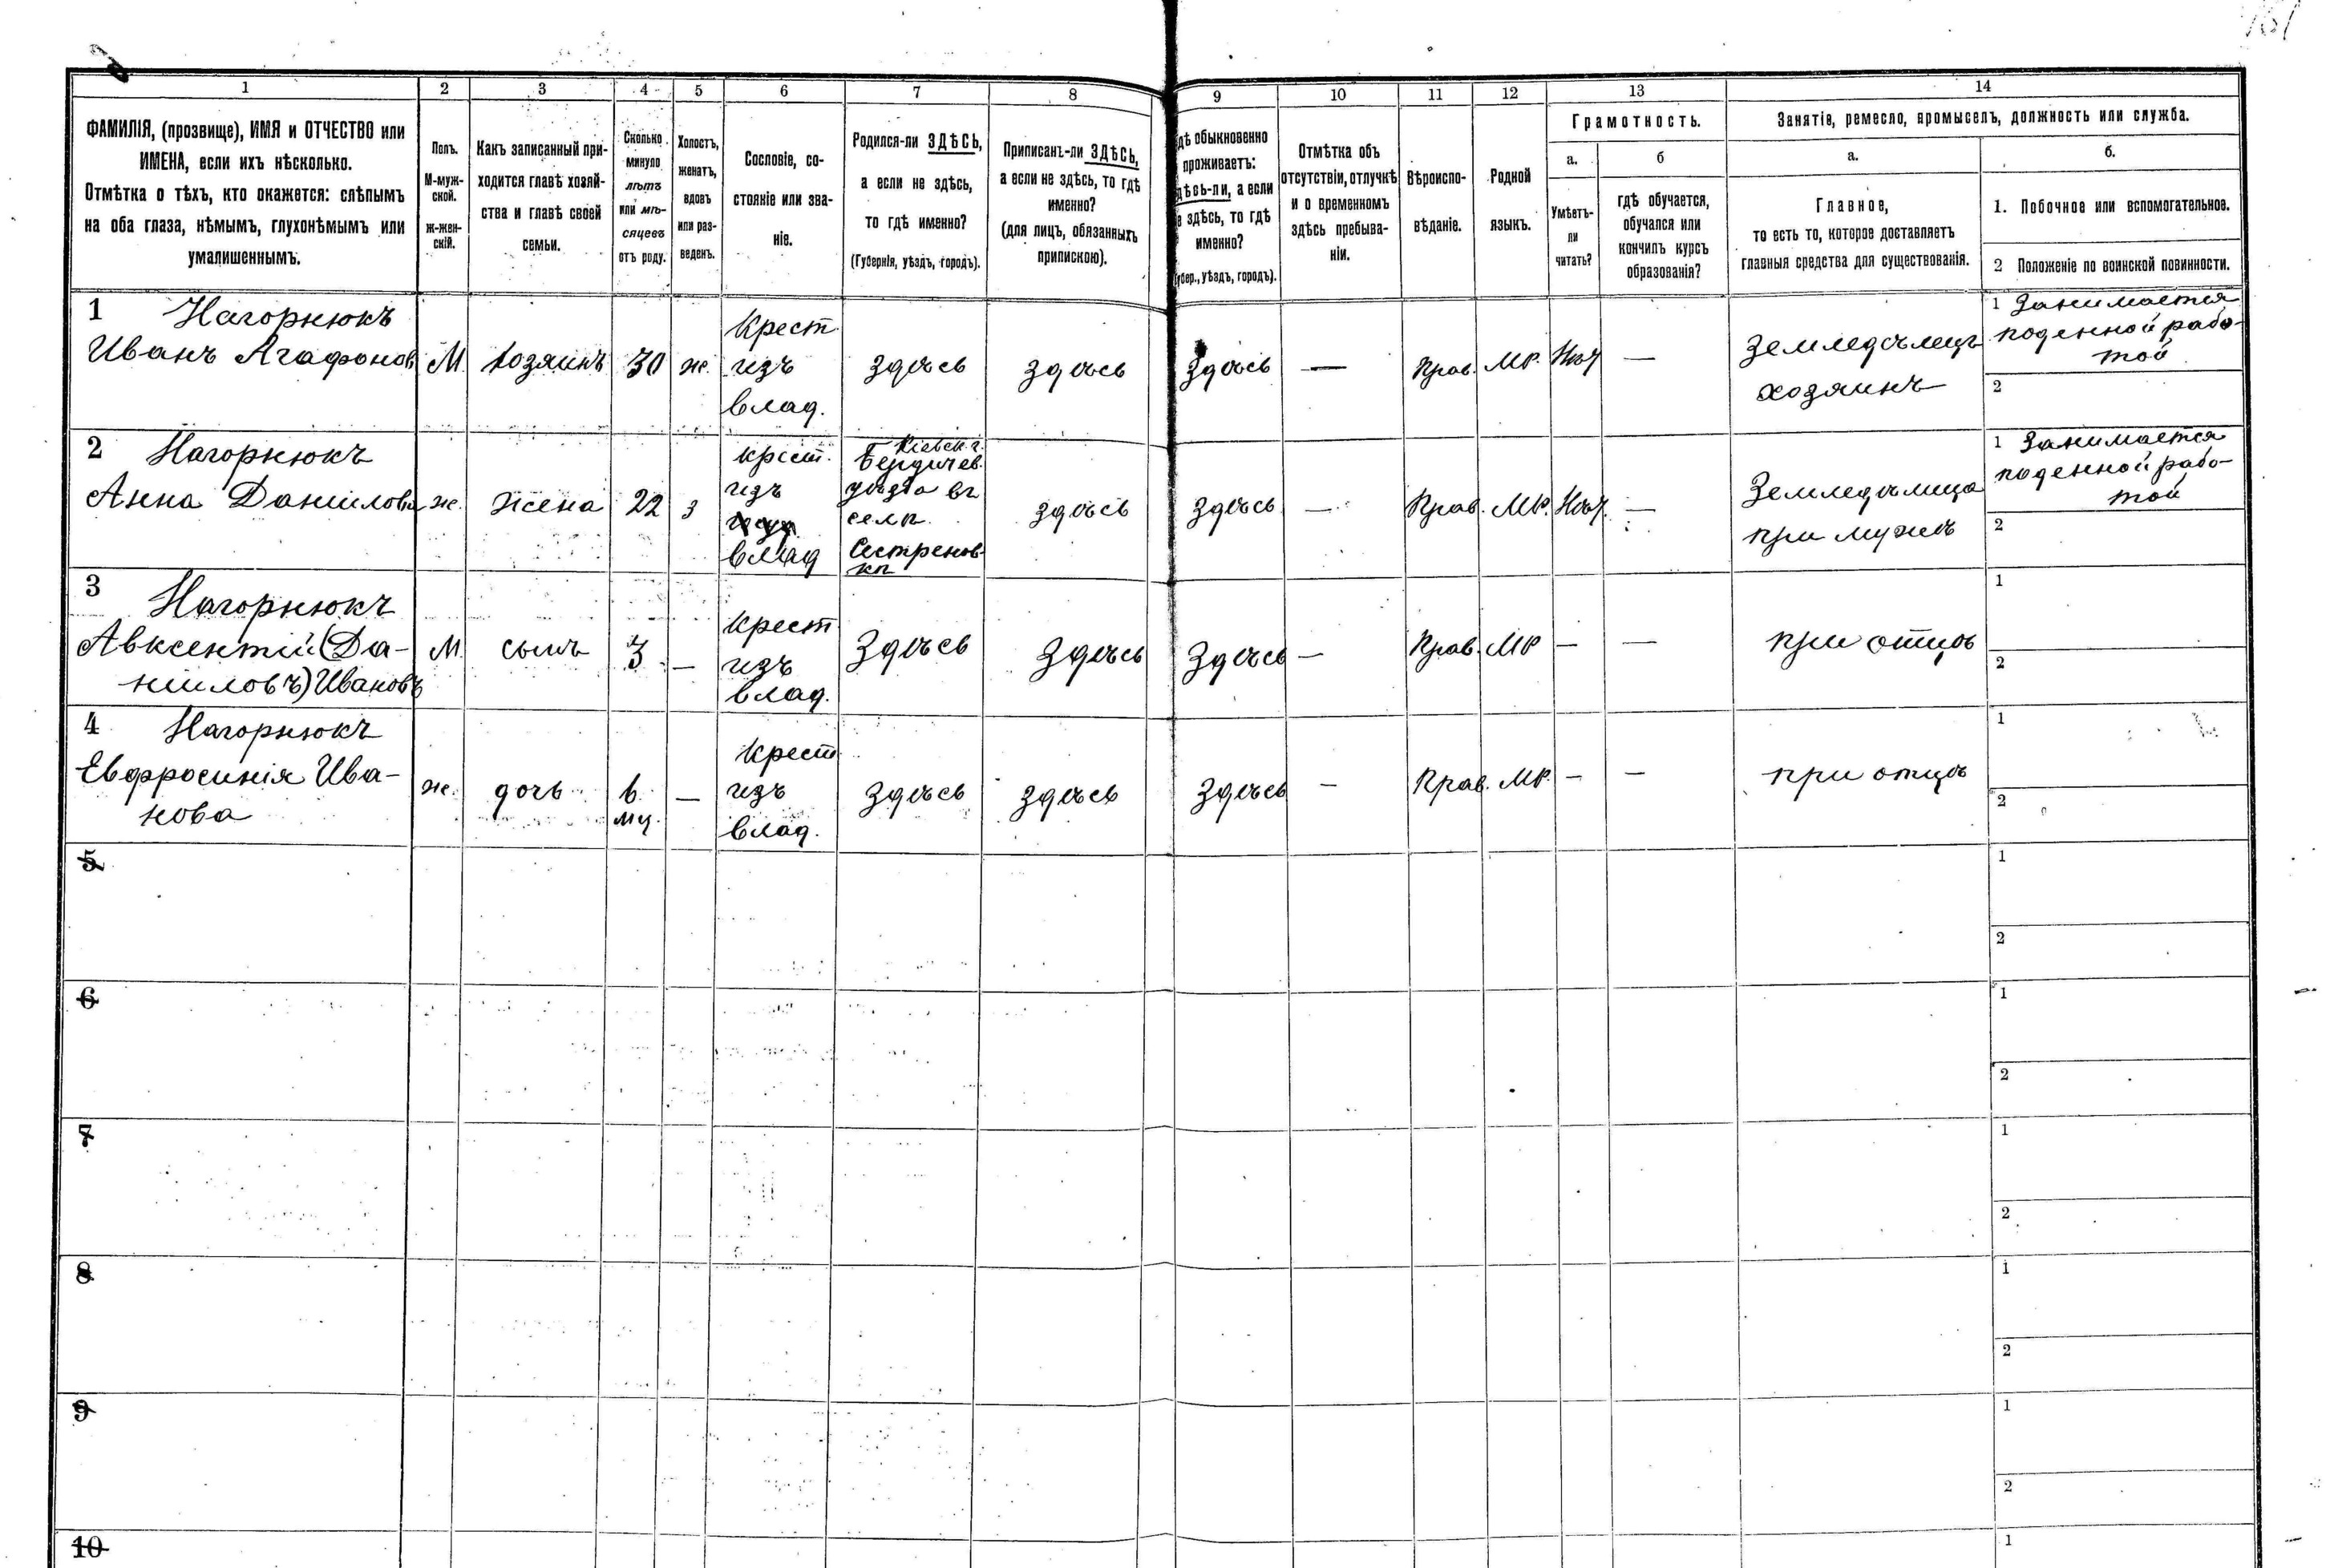 161
1 2 3 4 5 6 7 8 9 10 11 12 13 14
ФАМИЛІЯ, (прозвище), ИМЯ и ОТЧЕСТВО или
ИМЕНА, если ихъ нѣсколько.
Отмѣтка о тѣхъ, кто окажется: слѣпымъ
на оба глаза, нѣмымъ, глухонѣмымъ или
умалишеннымъ.
Полъ.
М-муж-
ской.
ж-жен-
скій.
Какъ записанный при-
ходится главѣ хозяй-
ства и главѣ своей
семьи.
Сколько
минуло
лѣтъ
или мѣ-
сяцевъ
отъ роду.
Холостъ,
женатъ,
вдовъ
или раз-
веденъ.
Сословіе, со-
стояніе или зва-
ніе.
Родился-ли ЗДѢСЬ,
а если не здѣсь,
то гдѣ именно?
(Губернія, уѣздъ, городъ).
Приписанъ-ли ЗДѢСЬ,
а если не здѣсь, то гдѣ
именно?
(для лицъ, обязанныхъ
припискою).
дѣ обыкновенно
проживаетъ:
дѣсь-ли, а если
е здѣсь, то гдѣ
именно?
(убер., уѣздъ, городъ).
Отмѣтка объ
отсутствіи, отлучкѣ
и о временномъ
здѣсь пребыва-
ніи.
Вѣроиспо-
вѣданіе.
Родной
языкъ.
Грамотность.
а.
Умѣетъ-
ли
читать?
б
гдѣ обучается,
обучался или
кончилъ курсъ
образованія?
Занятіе, ремесло, промыселъ, должность или служба.
а.
Главное,
то есть то, которое доставляетъ
главныя средства для существованія.
б.
1. Побочное или вспомогательное.
2 Положеніе по воинской повинности.
1 Нагорнюкъ
Иванъ Агафонов
М.
хозяинъ
30
ж.
Крест
изъ
влад.
здѣсь
здѣсь
здѣсь
—
Прав.
МР.
Нѣт
—
Земледѣлецъ
хозяинъ
1 Занимается
поденной рабо-
той
2
2 Нагорнюкъ
Анна Данилова
ж.
жена
22
з
крест.
изъ
влад
Кіевск. г.
Бердичев.
уѣзда въ
селѣ
Сестренов-
кѣ
здѣсь
здѣсь
—
Прав.
МР.
Нѣт.
—
Земледѣлица
при мужѣ
1 Занимается
поденной рабо-
той
2
3 Нагорнюкъ
Авксентій (Да-
ниловъ) Ивановъ
М.
сынъ
3
—
Крест
изъ
влад.
Здѣсь
Здѣсь
Здѣсь
—
Прав.
МР
—
—
при отцѣ
1
2
4 Нагорнюкъ
Евфросинія Ива-
нова
ж.
дочь
6.
мц.
—
Крест
изъ
влад.
Здѣсь
здѣсь
Здѣсь
—
Прав.
МР.
—
—
при отцѣ
1
2
5
1
2
6
1
2
7
1
2
8
1
2
9
1
2
10
1